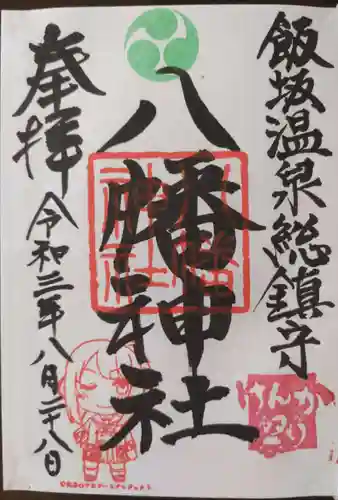 飯坂温泉総鎮守
八幡神社
奉拝
令和三年八月二十八日
けんか
祭り